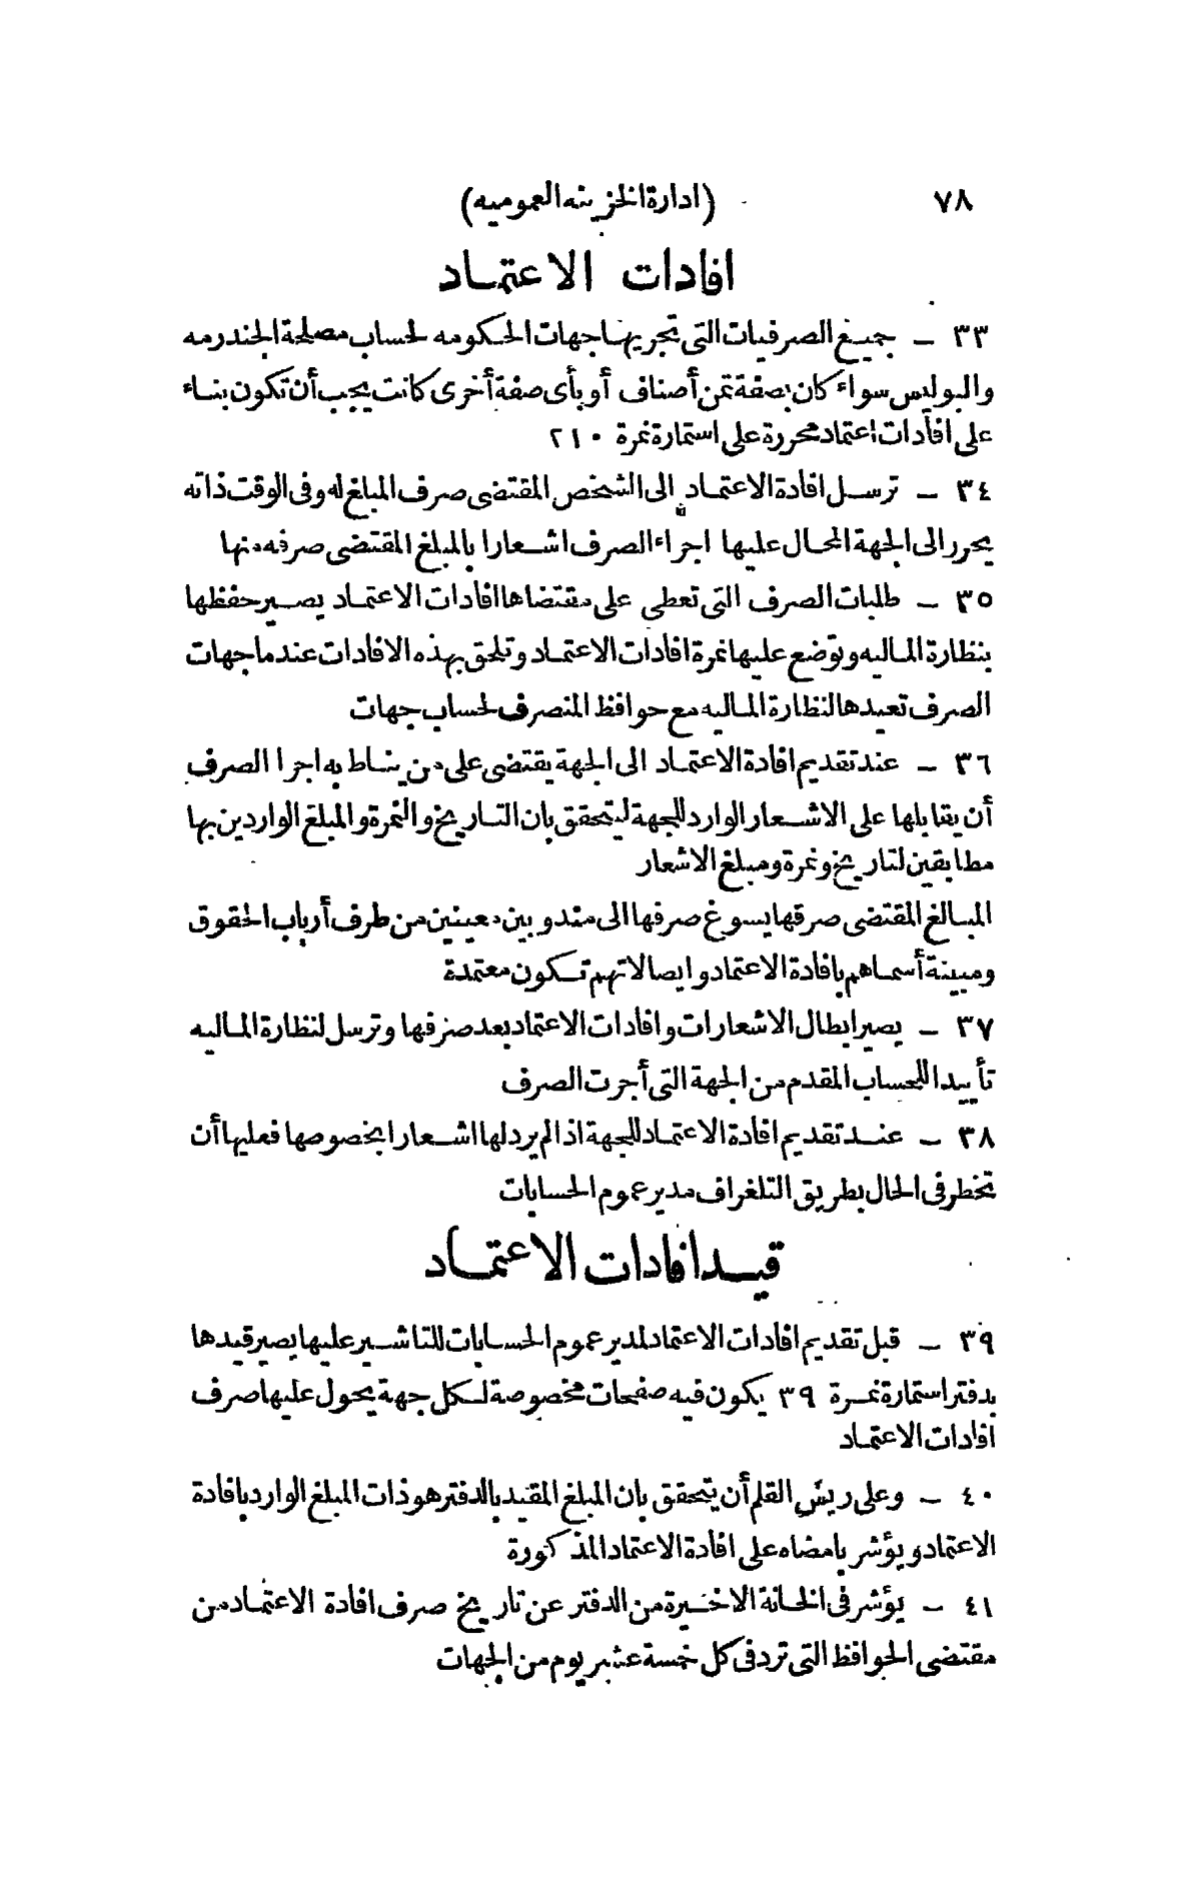 ٧٨ (ادارة الخزينه العموميه)
افادات الاعتماد
٣٣ – جميع الصرفيات التى تجريها جهات الحكومه لحساب مصلحة الجندرمه
والبوليس سواء كان بصفة ثمن أصناف أو بأى صفة أخرى كانت يجب أن تكون بناء
على افادات اعتماد محررة على استمارة نمرة ٢١٠
٣٤ – ترسل افادة الاعتماد الى الشخص المقتضى صرف المبلغ له وفى الوقت ذاته
يحرر الى الجهة المحال عليها اجراء الصرف اشعارا بالمبلغ المقتضى صرفه منها
٣٥ – طلبات الصرف التى تعطى على مقتضاها افادات الاعتماد يصير حفظها
بنظارة الماليه وتوضع عليها نمرة افادات الاعتماد وتلحق بهذه الافادات عندما جهات
الصرف تعيدها لنظارة الماليه مع حوافظ المنصرف لحساب جهات
٣٦ – عند تقديم افادة الاعتماد الى الجهة يقتضى على من يناط به اجرا الصرف
أن يقابلها على الاشعار الوارد للجهة ليتحقق بان التاريخ والنمرة والمبلغ الواردين بها
مطابقين لتاريخ ونمرة ومبلغ الاشعار
المبالغ المقتضى صرفها يسوغ صرفها الى مندوبين معينين من طرف أرباب الحقوق
ومبينة أسماهم بافادة الاعتماد وايصالاتهم تكون معتمدة
٣٧ – يصير ابطال الاشعارات وافادات الاعتماد بعد صرفها وترسل لنظارة الماليه
تأييدا للحساب المقدم من الجهة التى أجرت الصرف
٣٨ – عند تقديم افادة الاعتماد للجهة اذا لم يرد لها اشعارا بخصوصها فعليها أن
تخطر فى الحال بطريق التلغراف مدير عموم الحسابات
قيد افادات الاعتماد
٣٩ – قبل تقديم افادات الاعتماد لمدير عموم الحسابات للتاشير عليها يصير قيدها
بدفتر استمارة نمرة ٣٩ يكون فيه صفحات مخصوصة لكل جهة يحول عليها صرف
افادات الاعتماد
٤٠ – وعلى ريش القلم أن يتحقق بان المبلغ المقيد بالدفتر هو ذات المبلغ الوارد بافادة
الاعتماد ويؤشر بامضاه على افادة الاعتماد المذكورة
٤١ – يؤشر فى الخانة الاخيرة من الدفتر عن تاريخ صرف افادة الاعتماد من
مقتضى الحوافظ التى ترد فى كل خمسة عشر يوم من الجهات